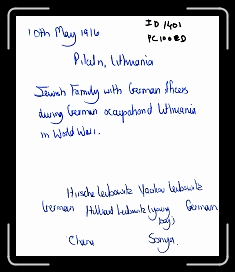 10th May 1916
ID 1401
PC100ED
Pikeln, Lithuania
Jewish Family with German officers
during German occupation of Lithuania
in World War I.
Hirsche Leibowitz
German Leibowitz (young German
boy)
Chana Sonya.